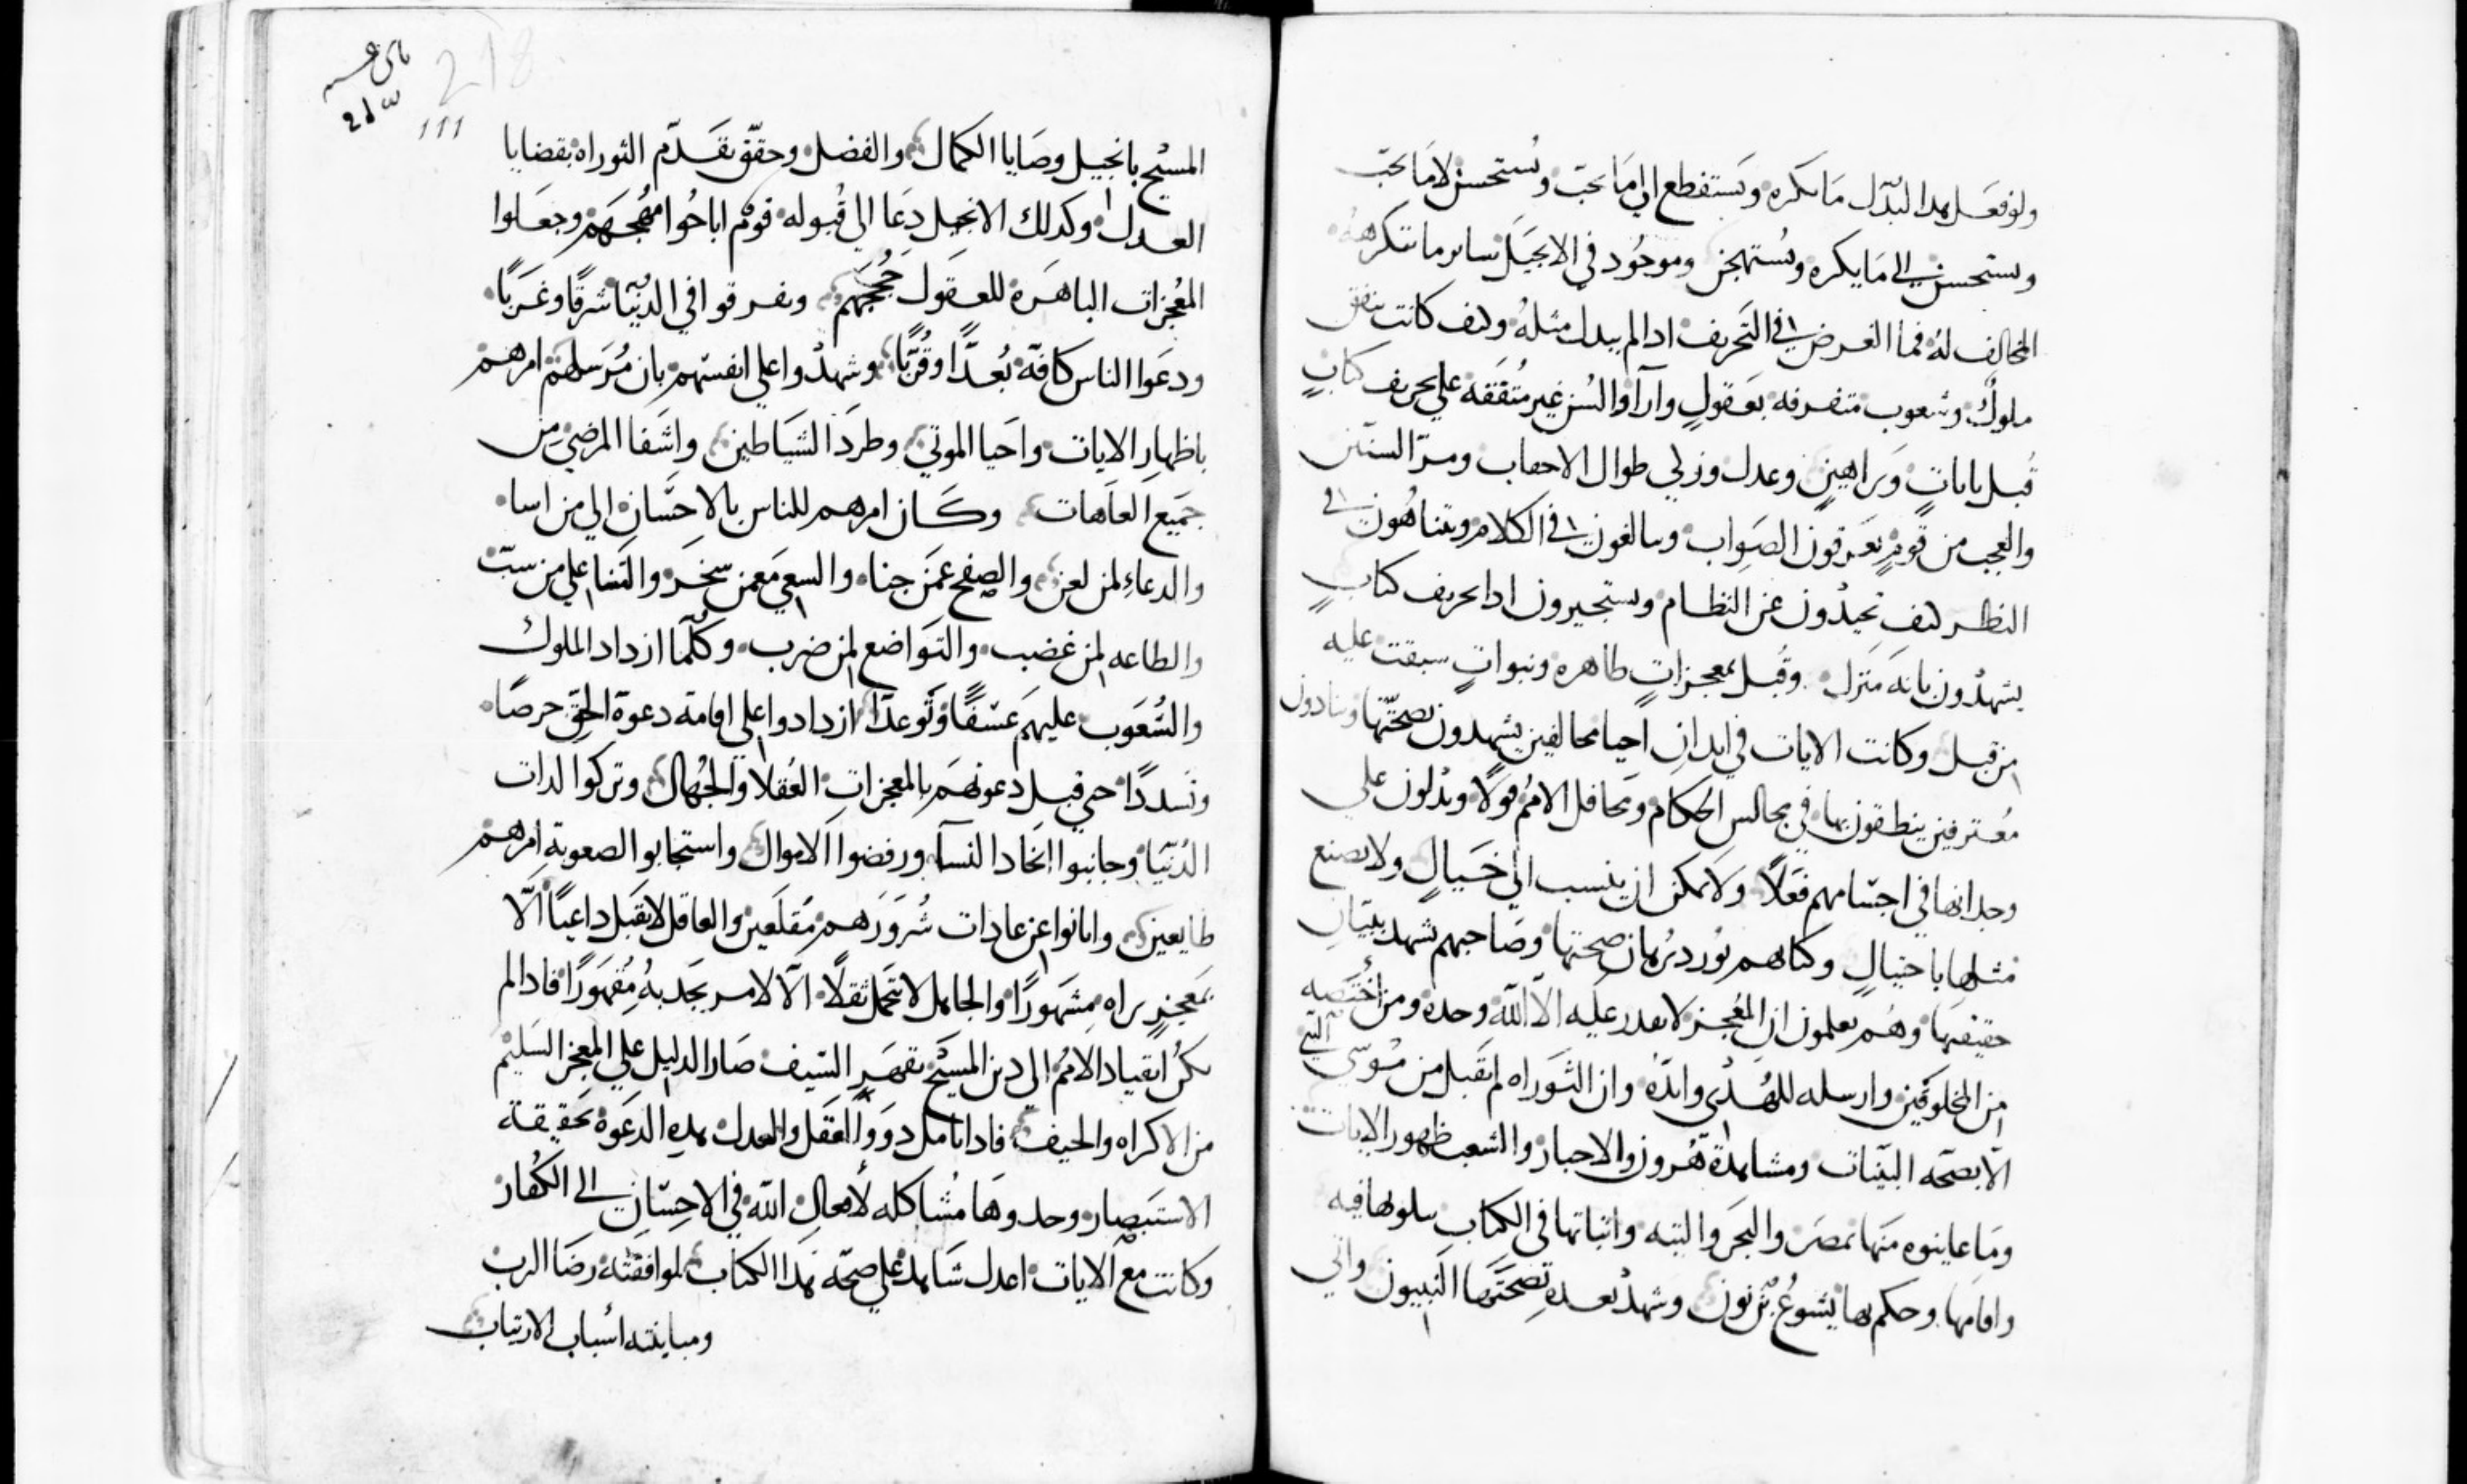 ولو فعل هدا لبدل ما يكره ويستفطع الي ما يحب ويستحسن لا ما يحب
ويستحسن الي ما يكره ويستهجن وموجود في الانجيل ساير ما تنكرهه
المخالف له فما الغرض في التحريف ادا لم يبدل مثله وكيف كانت تتفق
ملوك وشعوب متفرقه بعقول وآرآ والسن غير متفقه علي تحريف كتاب
قبل بايات وبراهين وعدل طوال الاحقاب ومر السنين
والعجب من قوم يعرفون الصواب ويبالغون في الكلام ويتناهون في
النظر كيف يحيدون عن النظام ويستجيرون ادا تحريف كتاب
يشهدون بانه منزل وقبل بمعجزات طاهره ونبوات سبقت عليه
من قبل وكانت الايات في ابدان احيا مخالفين يشهدون بصحتها وينادون
معترفين ينطقون بها في مجالس الحكام ومحافل الامم قولا ويدلون علي
وجدانها في اجسامهم فعلا ولا يمكن ان ينسب الي خيال ولا يصنع
مثلها باحتيال وكتابهم يورد برهان صحتها وصاحبهم يشهد ببيان
حقيقتها وهم يعلمون ان المعجز لا يقدر عليه الا الله وحده ومن اختصه
من المخلوقين وارسله للهدي وايده وان التوراه لم تقبل من موسي النبي
الا بصحه البينات ومشاهدة هرون والاحبار والشعب ظهور الايات
وما عاينوه منها بمصر والبحر والتيه واثباتها في الكتاب يتلونها فيه
واقامها وحكم بها يشوع بن نون وشهد بعده بصحتها النبيون واتي
218
111
المسيح بانجيل وصايا الكمال والفضل وحقق تقدم التوراه بقضايا
العدل وكدلك الانجيل دعا الي قبوله قوم اباحوا مهجهم وجعلوا
المعجزات الباهره للعقول حججهم وتفرقوا في الدنيا شرقا وغربا
ودعوا الناس كافه بعدا وقربا وشهدوا علي انفسهم بان مرسلهم امرهم
باظهار الايات واحيا الموتي وطرد الشياطين واشفا المرضي من
جميع العاهات وكان امرهم للناس بالاحسان الي من اسا
والدعاء لمن لعن والصفح عمن جنا والسعي مع من سخر والثنا علي من سب
والطاعه لمن غضب والتواضع لمن ضرب وكلما ازداد الملوك
والشعوب عليهم عسفا وتوعدا ازدادوا علي اقامة دعوة الحق حرصا
وتسددا حتي قبل دعوتهم بالمعجزات العقلا والجهال وتركوا لدات
الدنيا وجانبوا اتخاد النسآ ورفضوا الاموال واستجابوا لصعوبة امرهم
طايعين وابانوا عن عادات شرورهم مقلعين والعاقل لا يقبل داعيا الا
بمعجز يراه مشهورا والجاهل لا يتحمل ثقلا الا لامر يجدبه مقهورا فادا لم
يكن انقياد الامم الي دين المسيح بقهر السيف صار الدليل علي المعجز السليم
من الاكراه والحيف فادا تامل دوو العقل والعدل هده الدعوة بحقيقة
الاستبصار وجدوها مشاكله لافعال الله في الاحسان الي الكفار
وكانت مع الايات اعدل شاهد علي صحه هدا الكتاب لموافقته رضا الرب
ومباينته اسباب الارتياب